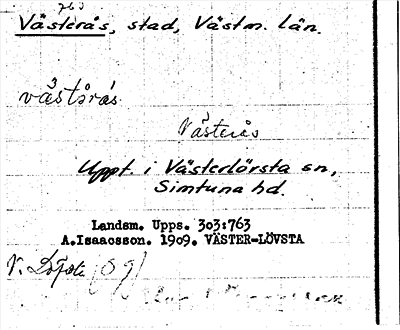 763
Västerås, stad, Västm. län.
västərås
Västerås
Uppt. i Västerlövsta sn,
Simtuna hd.
Landsm. Upps. 303:763
A.Isaacsson. 1909. VÄSTER-LÖVSTA
V. Löfsta (Sg)